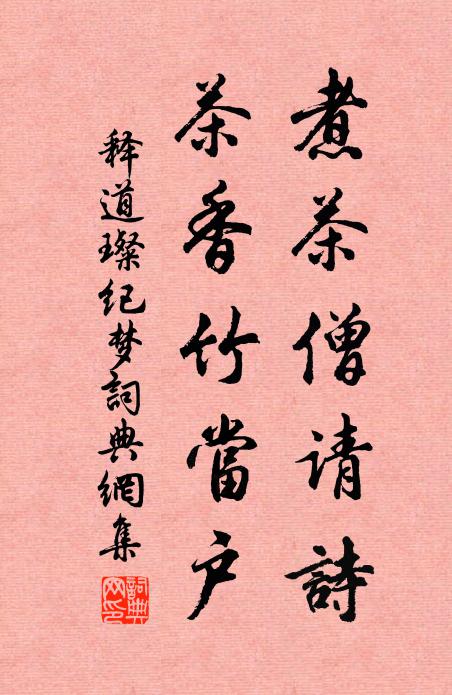 煮茶僧请詩
茶香竹當户
释道璨纪梦詞典網集
詞典網印